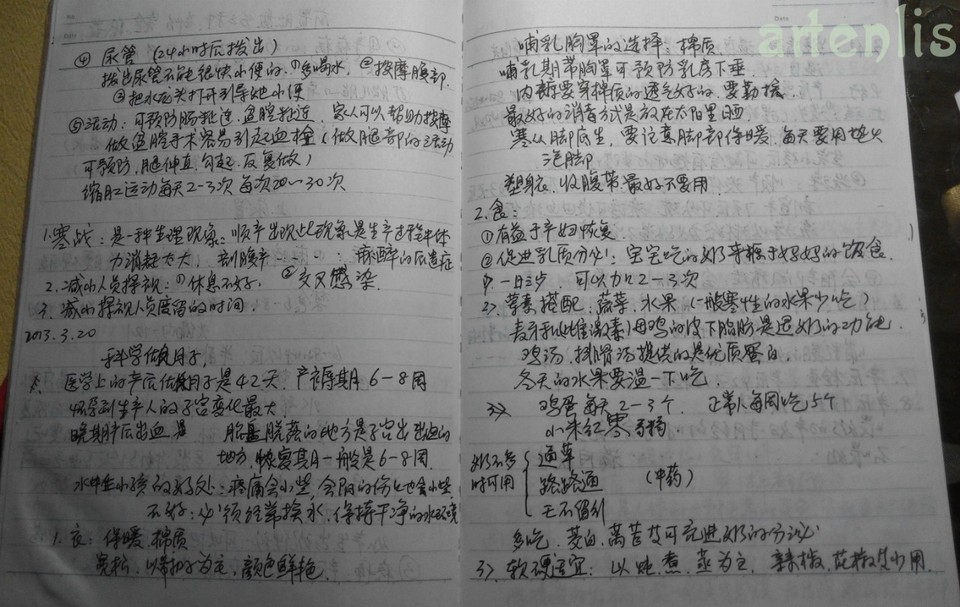 Date
④ 尿管（24小时后拨出）
拨出尿管不能很快小便的. ①多喝水. ②按摩腹部.
③把水龙头打开引导她小便
⑤活动：可预防肠粘连. 盆腔粘连. 家人可以帮助按摩
做盆腔手术容易引起血栓（做腿部的活动
可预防, 腿伸直, 勾起, 反复做）
缩肛运动每天2-3次 每次20~30次
1.寒战：是一种生理现象. 顺产出现此现象是生产过程中体
力消耗太大； 剖腹产 - - - - ：麻醉的后遗症
2. 减少人员探视：①休息不好. ②交叉感染.
3. 减少探视人员逗留的时间.
2013.3.20
科学做月子,
医学上的产后做月子是42天. 产褥期 6-8周
怀孕到生产人的子宫变化最大
晚期产后出血是 胎盘脱落的地方是子宫出血的
地方. 恢复期一般是6-8周.
水中生小孩的好处：疼痛会小些, 会阴的伤也会小些
不好：必须经常换水. 保持干净的水环境
1. 衣：保暖. 棉质
宽松, 以 为主, 颜色鲜艳.
Date
artenlis
哺乳胸罩的选择：棉质.
哺乳期带胸罩可预防乳房下垂.
内裤要穿棉质的透气好的. 要勤换.
最好的消毒方式是放在太阳里晒
寒从脚底生. 要注意脚部保暖. 每天要用热水
泡脚
塑身衣, 收腹带最好不要用.
2.食：
①有益于产妇恢复.
②促进乳质分泌：宝宝吃的奶来源于妈妈的饮食.
一日三步 可以加2-3次
2>荤素搭配. 蔬菜. 水果（一般寒性的水果少吃）
母鸡的皮下脂肪是退奶的功能.
鸡汤, 排骨汤提供的是优质蛋白.
冬天的水果要温一下吃.
鸡蛋每天2-3个. 正常人每周吃5个
小米红枣
奶不多
时可用
通草
路路通 （中药）
王不留行
多吃. 茭白, 莴苣 可促进奶的分泌
3> 软硬适宜：以炖. 煮. 蒸为主. 辣椒, 花椒 少用.